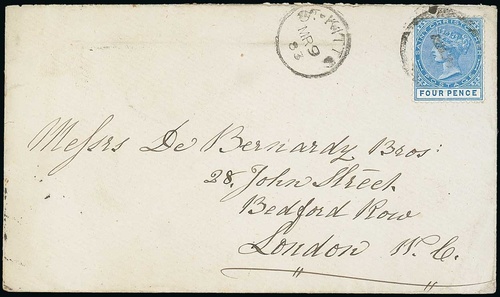 ST. KITTS
MR 9
83
SAINT CHRISTOPHER
POSTAGE
FOUR PENCE
Messrs De Bernardy Bros:
28, John Street
Bedford Row
London W.C.